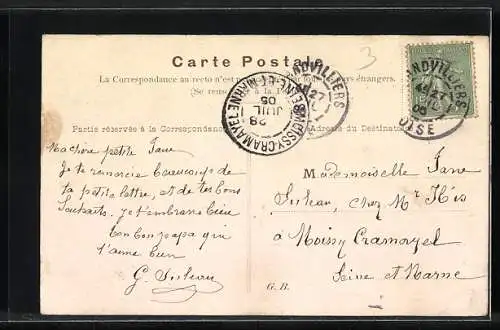 3
Carte Postale
La Correspondance au recto n'est pas étrangers.
(Se rense à la P
Partie réservée à la Correspondance
Adresse du Destinataire
MOISSY-CRAMAYEL SEINE-ET-MARNE
28
JUIL
05
ANDVILLIERS
27
GRANDVILLIERS
OISE
Ma chère petite Jane
Je te remercie beaucoup de
ta petite lettre, et de tes bons
Souhaits. Je t'embrasse bien
bon papa qui
t'aime bien
Mademoiselle Jane
chez Mr
à Moissy Cramayel
Seine et Marne
G. B.